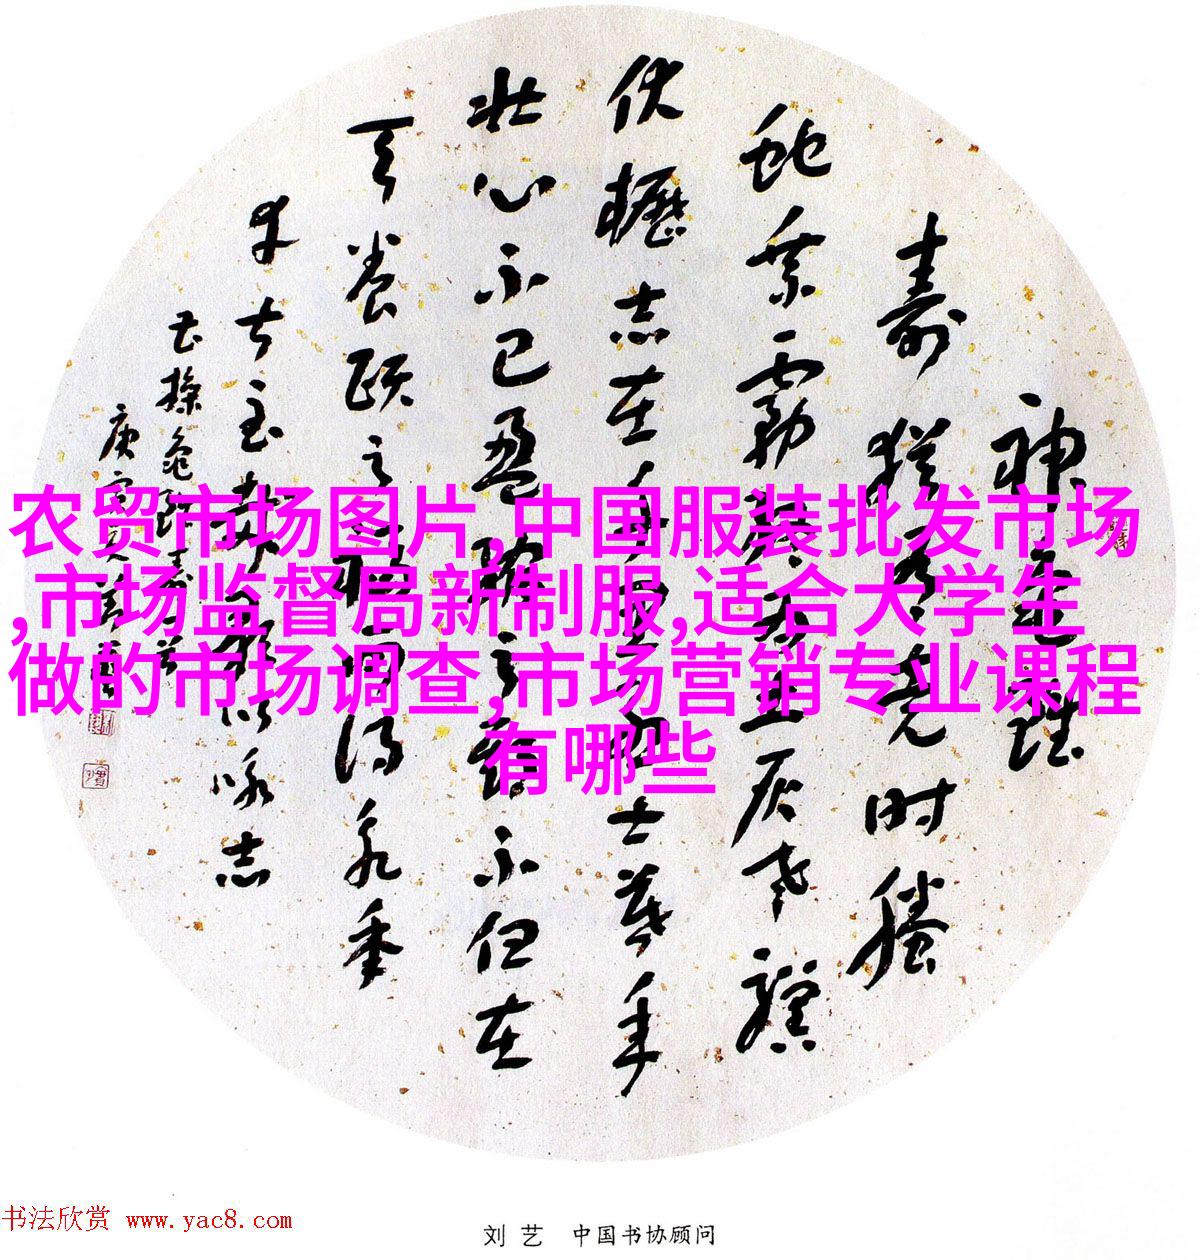 农贸市场图片,中国服装批发市场
,市场监督局新制服,适合大学生
做的市场调查,市场营销专业课程
有哪些
神龜雖
壽猶有竟时螣
蛇乘霧終为土灰老驥
伏櫪志在千里烈士暮年
壯心不已盈縮之期不但在
天養頤之福可得永年
幸甚至哉歌以咏志
曹操龜雖壽
庚寅夏
书法欣赏 www.yac8.com
刘艺 中国书协顾问